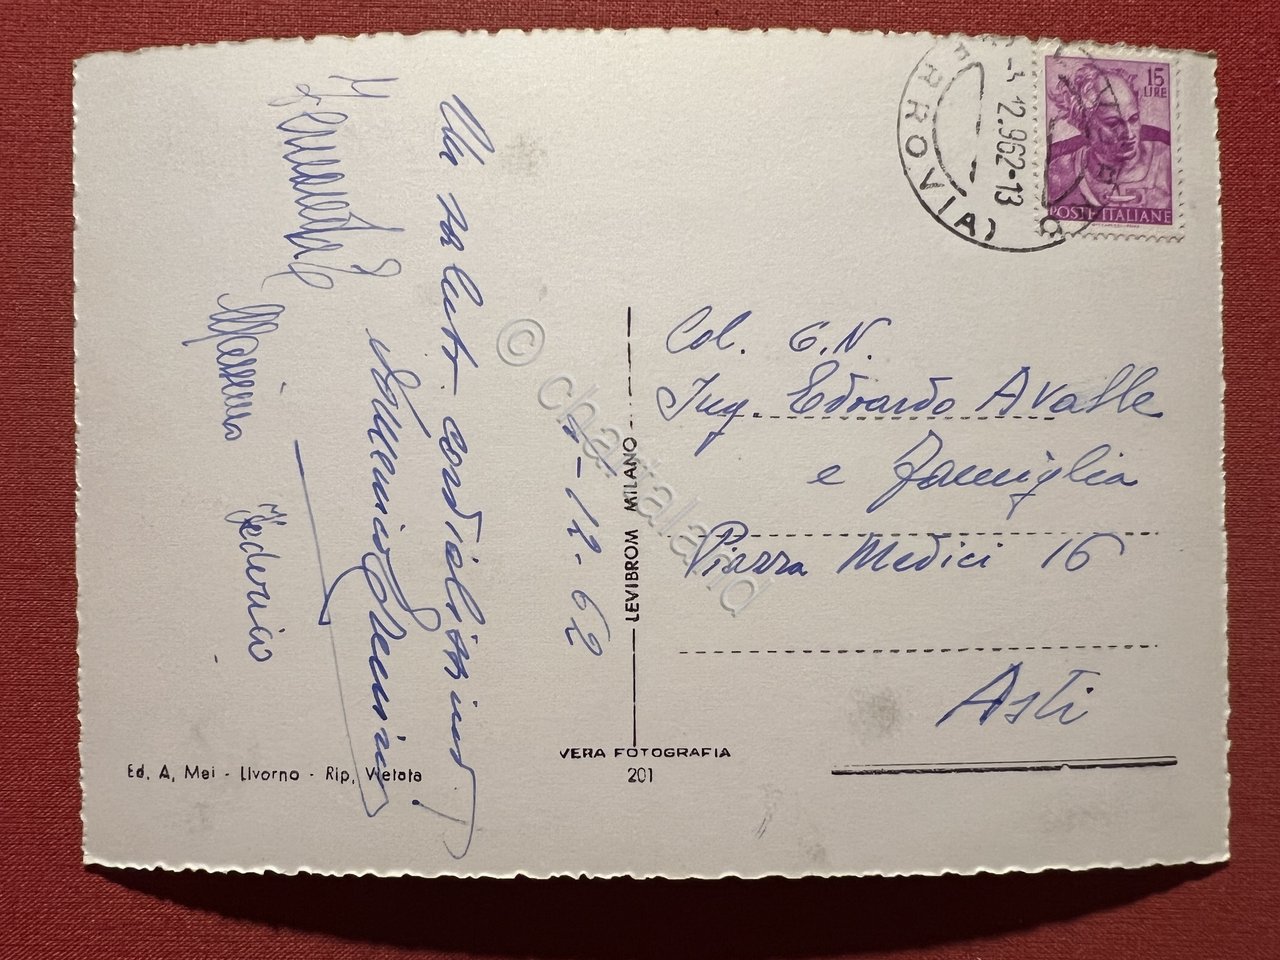 Un saluto cordialissimo!
Massimo
Federico
4-12-62
LEVIBROM MILANO
VERA FOTOGRAFIA
201
Ed. A. Mei - Livorno - Rip. Vietata
FERROVIA)
12.962-13
15
LIRE
POSTE ITALIANE
Col. G.N.
Ing. Edoardo Avalle
e famiglia
Piazza Medici 16
Asti
© chartaland